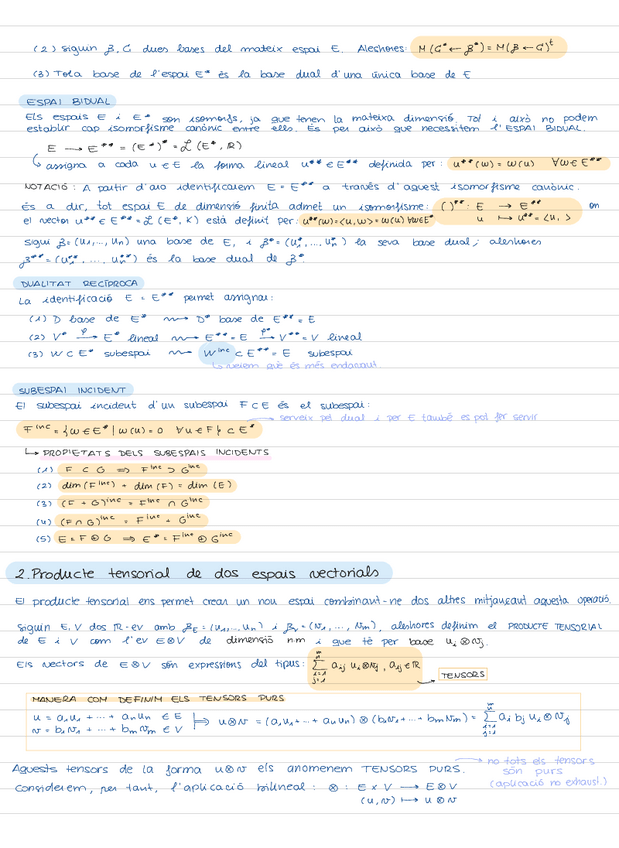 (2) Siguin B, C dues bases del mateix espai E. Aleshores: M(C* ← B*) = M(B ← C)ᵗ
(3) Tota base de l'espai E* és la base dual d'una única base de E
ESPAI BIDUAL
Els espais E i E* són isomorfs, ja que tenen la mateixa dimensió. Tot i això no podem
establir cap isomorfisme canònic entre ells. És per això que necessitem l'ESPAI BIDUAL.
E → E** = (E*)* = L(E*, R)
↳ assigna a cada u ∈ E la forma lineal u** ∈ E** definida per: u**(w) = w(u) ∀w ∈ E**
NOTACIÓ: A partir d'ara identificarem E = E** a través d'aquest isomorfisme canònic.
És a dir, tot espai E de dimensió finita admet un isomorfisme: ( )**: E → E** on
u ↦ u** = <u, >
el vector u** ∈ E** = L(E*, K) està definit per: u**(w) = <u,w> = w(u) ∀w∈E*
Sigui B = (u₁, ..., uₙ) una base de E, i B* = (u₁*, ..., uₙ*) la seva base dual; aleshores
B** = (u₁**, ..., uₙ**) és la base dual de B*.
DUALITAT RECÍPROCA
La identificació E = E** permet assignar:
(1) D base de E* ⇝ D* base de E** = E
(2) V* →φ E* lineal ⇝ E** = E →φ* V** = V lineal
(3) W ⊂ E* subespai ⇝ Wⁱⁿᶜ ⊂ E** = E subespai
↳ veiem què és més endavant
SUBESPAI INCIDENT
El subespai incident d'un subespai F ⊂ E és el subespai:
→ serveix pel dual i per E també es pot fer servir
Fⁱⁿᶜ = {w ∈ E* | w(u) = 0 ∀u ∈ F} ⊂ E*
↳ PROPIETATS DELS SUBESPAIS INCIDENTS
(1) F ⊂ G ⇒ Fⁱⁿᶜ ⊃ Gⁱⁿᶜ
(2) dim(Fⁱⁿᶜ) + dim(F) = dim(E)
(3) (F + G)ⁱⁿᶜ = Fⁱⁿᶜ ∩ Gⁱⁿᶜ
(4) (F ∩ G)ⁱⁿᶜ = Fⁱⁿᶜ + Gⁱⁿᶜ
(5) E = F ⊕ G ⇒ E* = Fⁱⁿᶜ ⊕ Gⁱⁿᶜ
2. Producte tensorial de dos espais vectorials
El producte tensorial ens permet crear un nou espai combinant-ne dos altres mitjançant aquesta operació.
Siguin E, V dos R-ev amb B_E = (u₁, ..., uₙ) i B_V = (v₁, ..., vₘ), aleshores definim el PRODUCTE TENSORIAL
de E i V com l'ev E⊗V de dimensió n·m i que té per base uᵢ⊗vⱼ.
Els vectors de E⊗V són expressions del tipus: Σ aᵢⱼ uᵢ⊗vⱼ, aᵢⱼ ∈ R
→ TENSORS
MANERA COM DEFINIM ELS TENSORS PURS
u = a₁u₁ + ... + aₙuₙ ∈ E
v = b₁v₁ + ... + bₘvₘ ∈ V
u⊗v = (a₁u₁ + ... + aₙuₙ) ⊗ (b₁v₁ + ... + bₘvₘ) = Σ aᵢbⱼ uᵢ⊗vⱼ
Aquests tensors de la forma u⊗v els anomenem TENSORS PURS.
→ no tots els tensors
són purs
(aplicació no exhaust.)
Considerem, per tant, l'aplicació bilineal: ⊗: E × V → E⊗V
(u,v) ↦ u⊗v